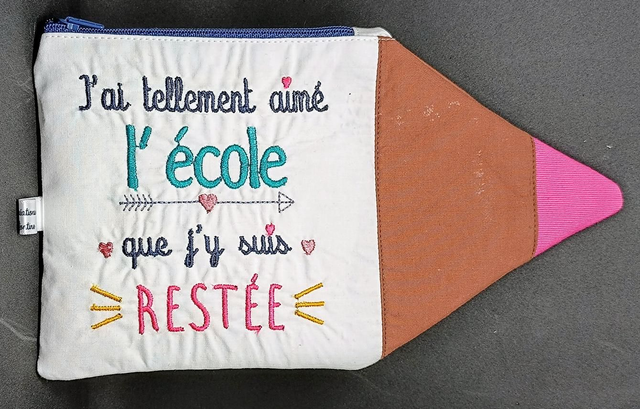 J'ai tellement aimé
l'école
que j'y suis
RESTÉE